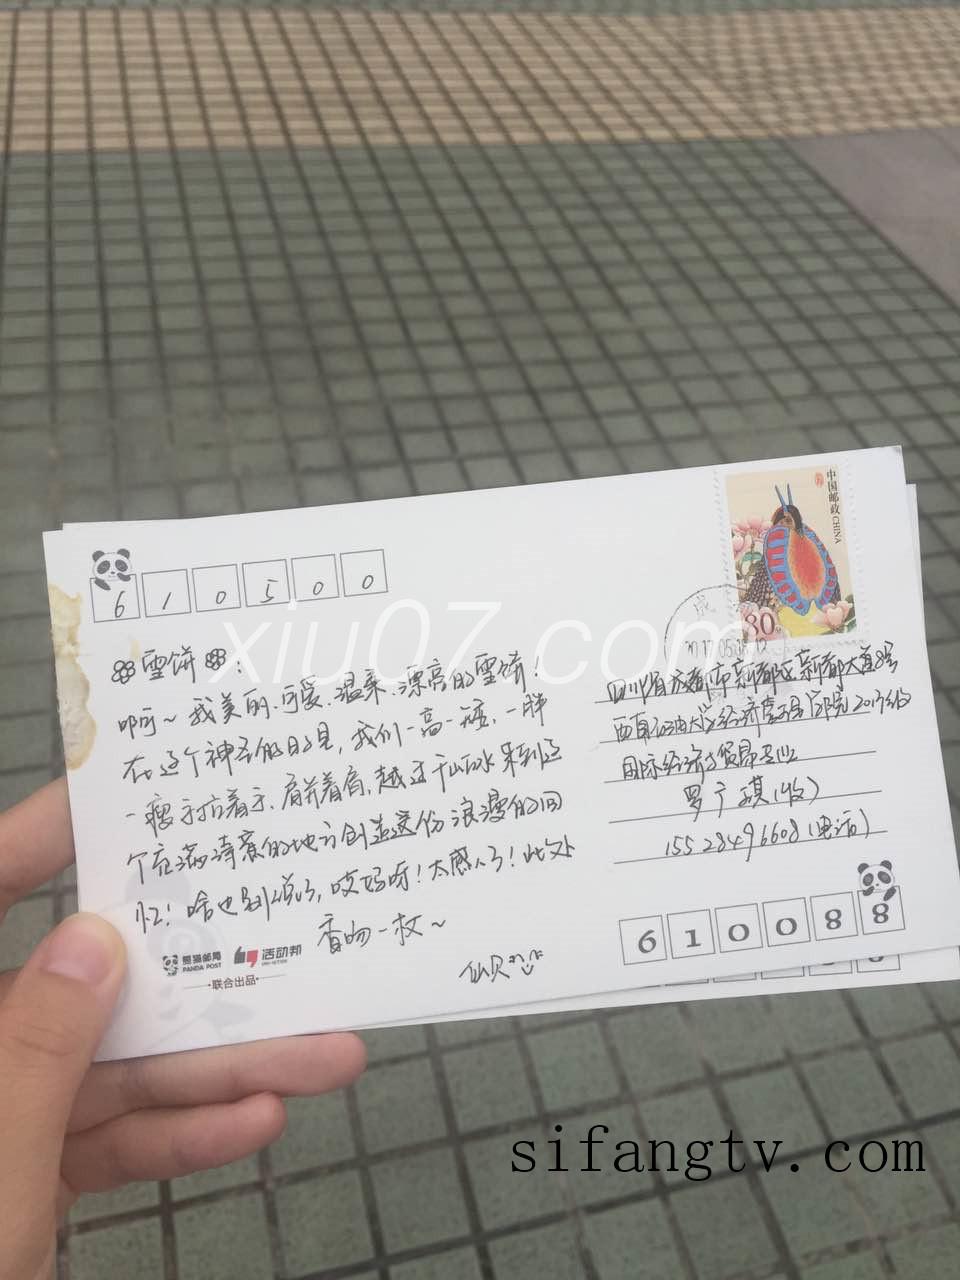 中国邮政
CHINA
80
610500
雪饼：
啊~我美丽、可爱、温柔、漂亮的雪饼！
在这个神圣的日子里，我们一高一矮、一胖
一瘦手拉着手、肩并着肩，越过千山万水来到这
个充满诗意的地方创造这份浪漫的回
忆！啥也别说了，哎妈呀！太感人了！此处
香吻一枚~
仙贝
熊猫邮局
PANDA POST
活动邦
联合出品
成
2017.05
四川省成都市新都区新都大道8号
西南石油大学经济管理学院2015级
国际经济与贸易专业
罗 琪（收）
15528496608（电话）
610088
xiu07.com
sifangtv.com